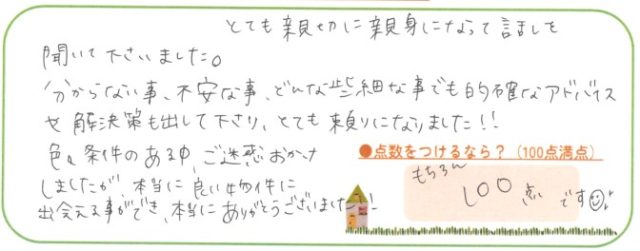 とても親切に親身になって話しを
聞いて下さいました。
分からない事、不安な事、どんな些細な事でも的確なアドバイス
や解決策も出して下さり、とても頼りになりました!!
色々条件のある中、ご迷惑おかけ
しましたが、本当に良い物件に
出会える事ができ、本当にありがとうございました
●点数をつけるなら?(100点満点)
もちろん
100点です